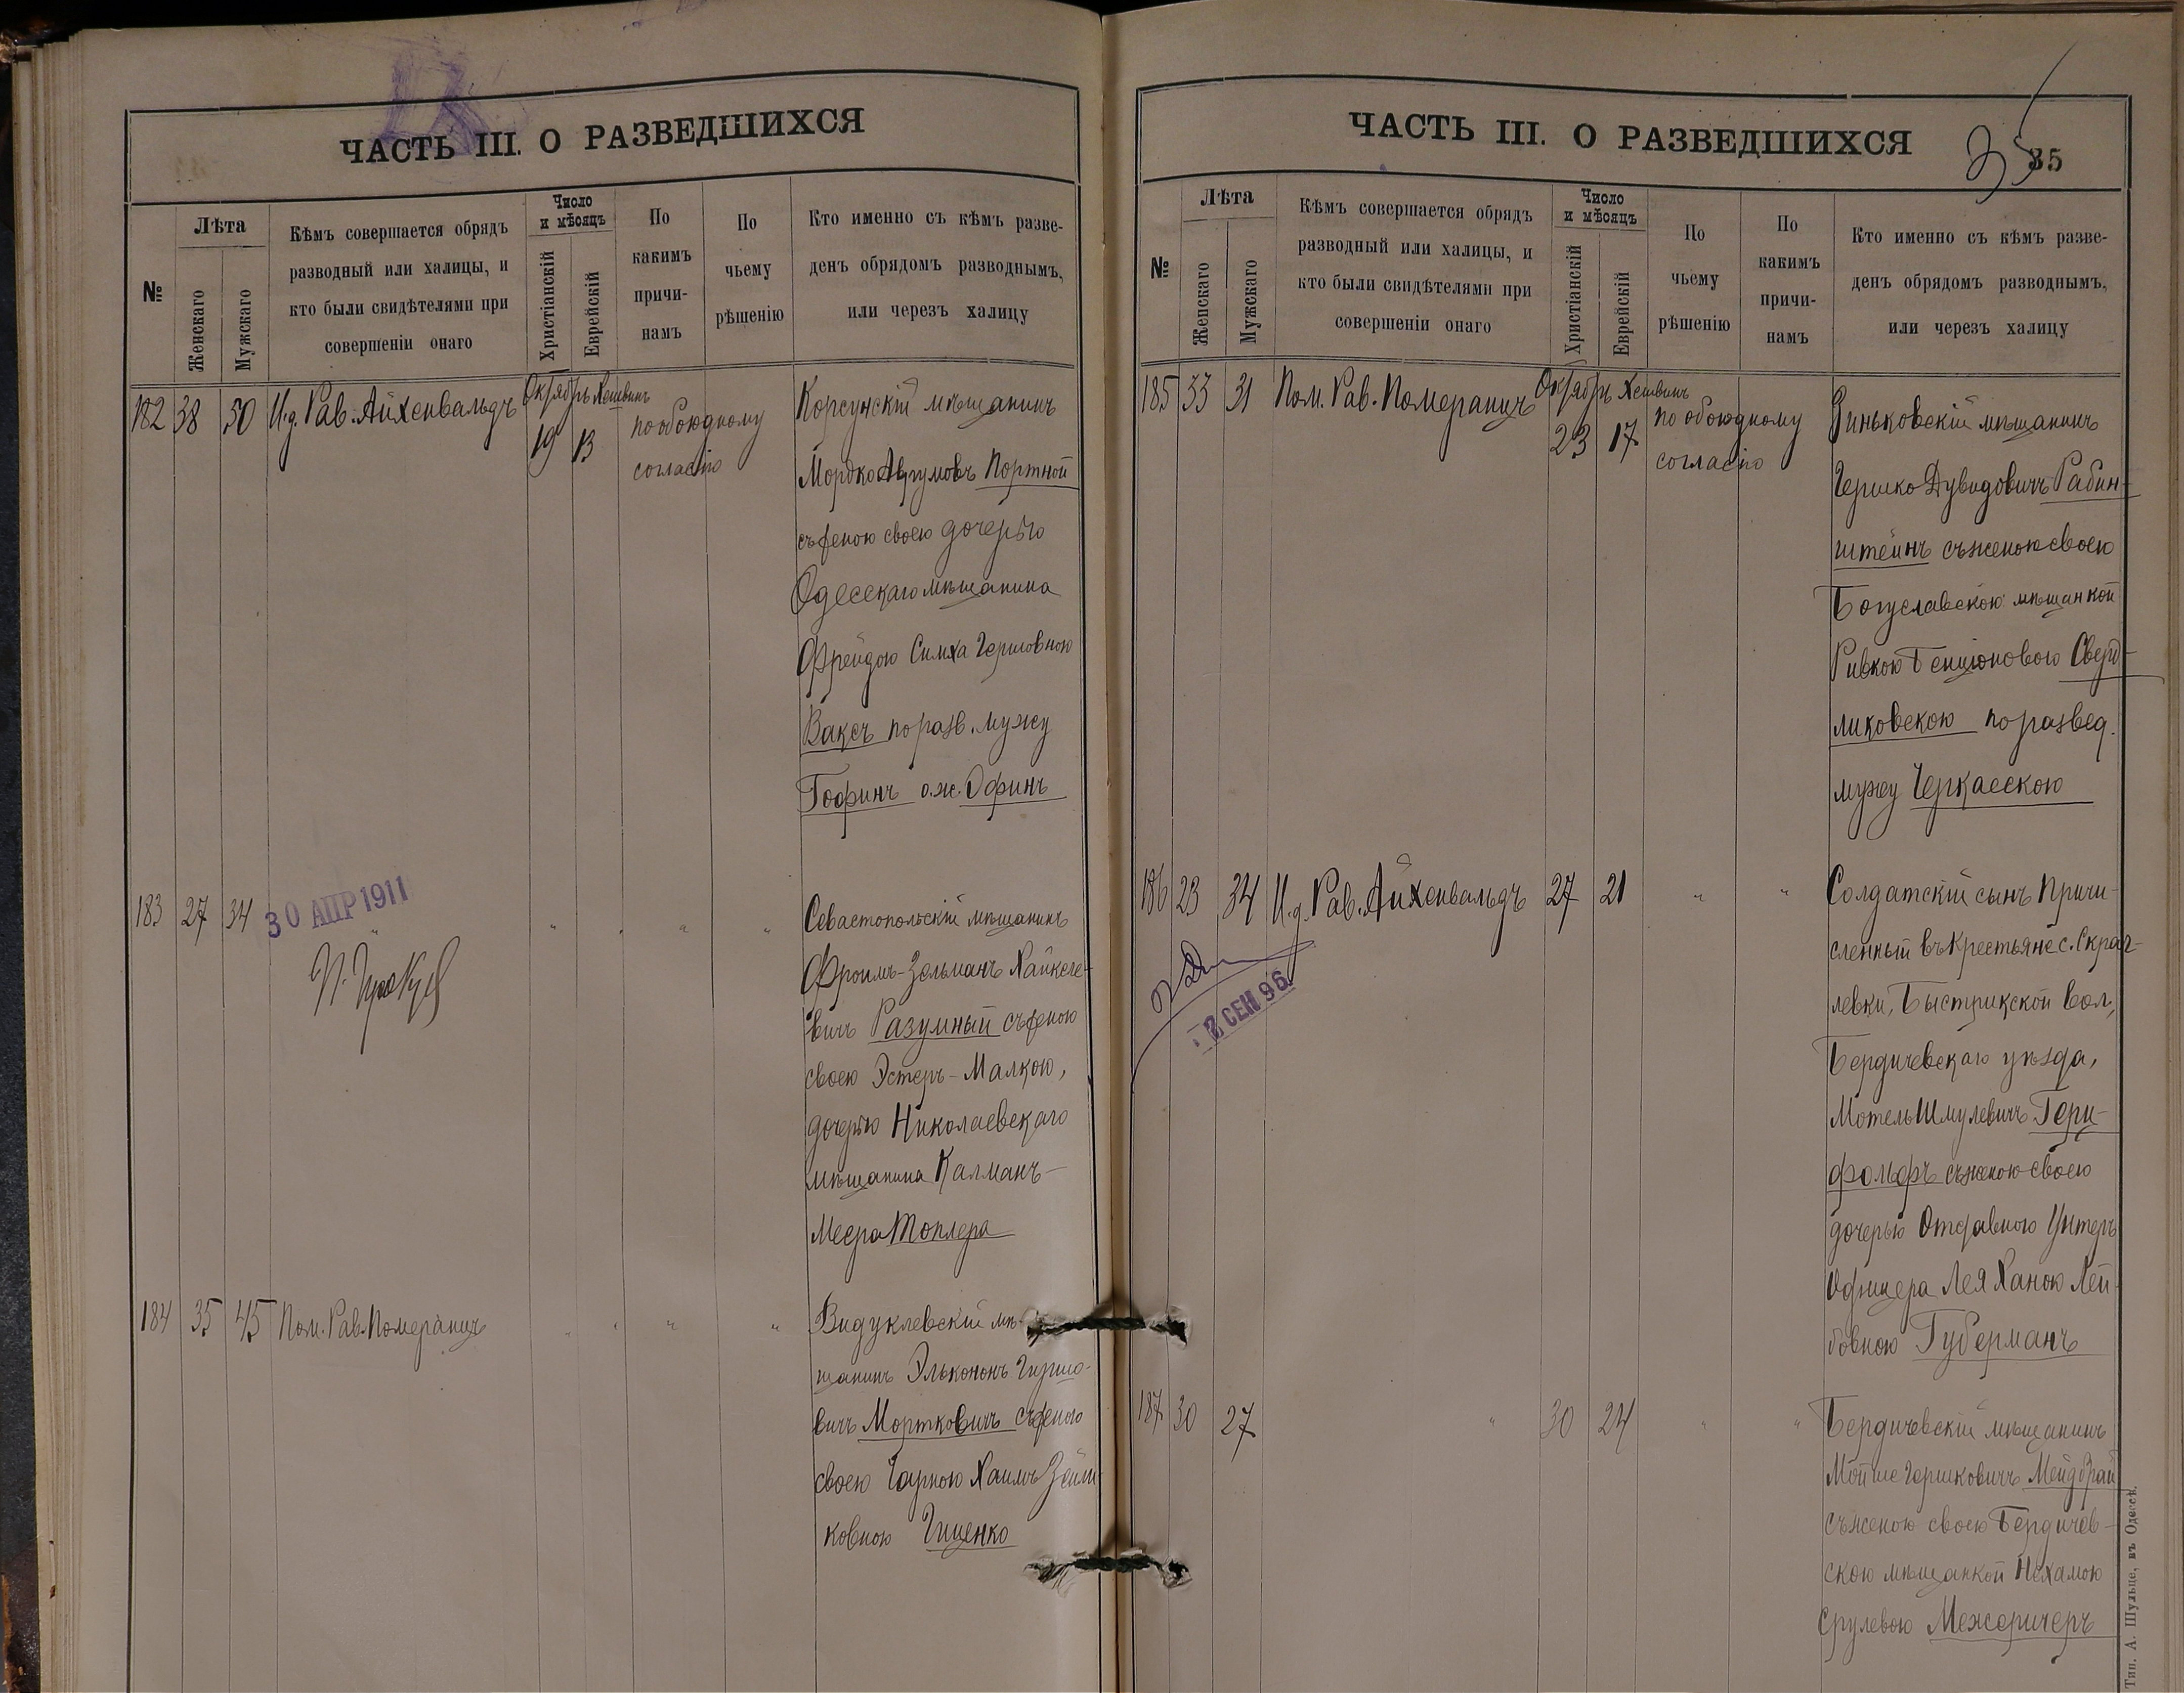 ЧАСТЬ III. О РАЗВЕДШИХСЯ
№
Лѣта
Женскаго
Мужскаго
Кѣмъ совершается обрядъ
разводный или халицы, и
кто были свидѣтелями при
совершеніи онаго
Число
и мѣсяцъ
Христіанскій
Еврейскій
По
какимъ
причи-
намъ
По
чьему
рѣшенію
Кто именно съ кѣмъ разве-
денъ обрядомъ разводнымъ,
или черезъ халицу
182 38 50 И.д. Рав. Айхенвальдъ
Октябрь Хешвинъ
19 13
по обоюдному
согласію
Корсунскій мѣщанинъ
Мордко Аврумовъ Портной
съ женою своею дочерью
Одесскаго мѣщанина
Фрейдою Симха Гершовною
Ваксъ по разв. мужу
Гофинъ о.ж. Офинъ
183 27 34 " " " " "
30 АПР 1911
Севастопольскій мѣщанинъ
Фроимъ-Зельманъ
вичъ Разумный съ женою
своею Эстеръ-Малкою,
дочерью Николаевскаго
мѣщанина Калманъ-
Меера Топлера
184 35 45 Пом. Рав. Померанцъ " " " "
Видуклевскій мѣ-
щанинъ Элькононъ Гиршо-
вичъ Мортковичъ съ женою
своею Чарною Хаимъ Зейли-
ковною Гиценко
ЧАСТЬ III. О РАЗВЕДШИХСЯ
35
35
№
Лѣта
Женскаго
Мужскаго
Кѣмъ совершается обрядъ
разводный или халицы, и
кто были свидѣтелями при
совершеніи онаго
Число
и мѣсяцъ
Христіанскій
Еврейскій
По
чьему
рѣшенію
По
какимъ
причи-
намъ
Кто именно съ кѣмъ разве-
денъ обрядомъ разводнымъ,
или черезъ халицу
185 33 31 Пом. Рав. Померанцъ
Октябрь Хешвинъ
23 17
по обоюдному
согласію
Зиньковскій мѣщанинъ
Гершко Дувидовичъ Рабин-
штейнъ съ женою своею
Богуславскою мѣщанкой
Ривкою Бенціоновою Сверд-
ликовскою по развед.
мужу Черкасскою
186 23 34 И.д. Рав. Айхенвальдъ 27 21 " "
2 СЕН 96
Солдатскій сынъ причи-
сленный въ крестьяне с. Скраг-
левки, Быстрикской вол.,
Бердичевскаго уѣзда,
Мотель Шмулевичъ Гери-
фольфъ съ женою своею
дочерью Отставного Унтеръ
Офицера Лея Ханою Лей-
бовною Губерманъ
187 30 27 " 30 24 " "
Бердичевскій мѣщанинъ
Мойше Гершковичъ Мейдбрай
съ женою своею Бердичев-
скою мѣщанкой Нехамою
Срулевою Межеричеръ
Тип. А. Шульце, въ Одессѣ.